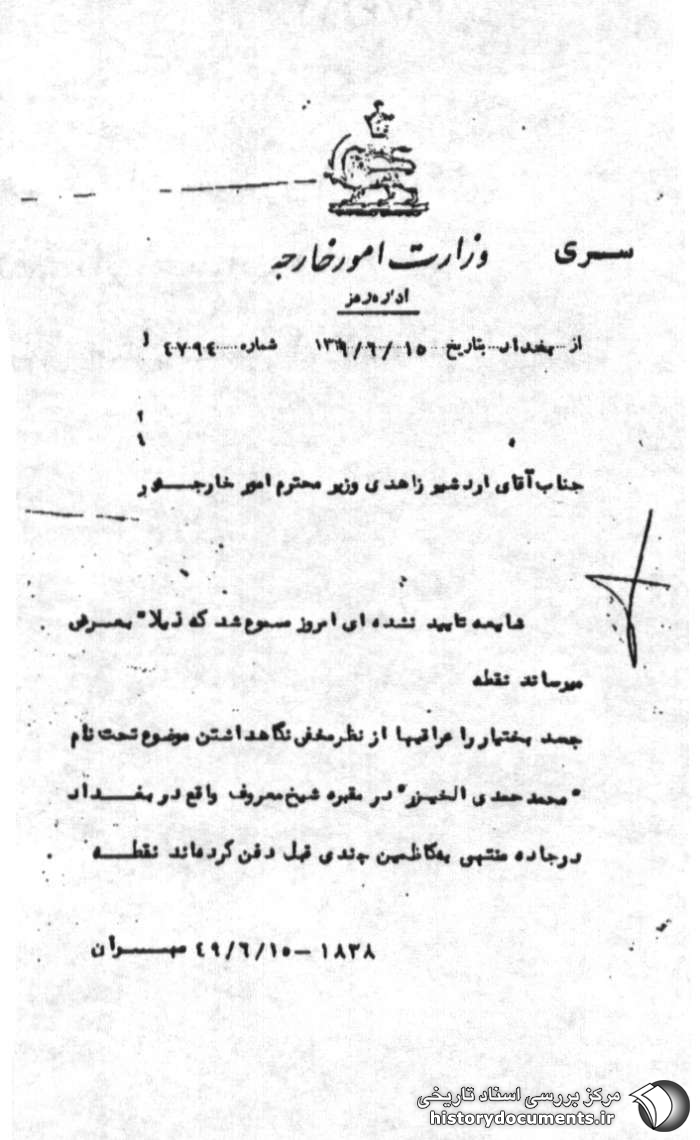 سری
وزارت امور خارجه
اداره رمز
از بغداد بتاریخ ۱۳۴۹/۶/۱۵ شماره ٤٧٩٤
جناب آقای اردشیر زاهدی وزیر محترم امور خارجه
شایعه تایید نشده ای امروز مسموع شد که ذیلا" بعرض
میرساند نقطه
جسد بختیار را عراقیها از نظر مخفی نگاهداشتن موضوع تحت نام
"محمد حمدی الخیزر" در مقبره شیخ معروف واقع در بغداد
درجاده منتهی بکاظمین چندی قبل دفن کرده‌اند نقطه
۱۸۳۸ – ٤٩/٦/١٥ مهران
مرکز بررسی اسناد تاریخی
historydocuments.ir